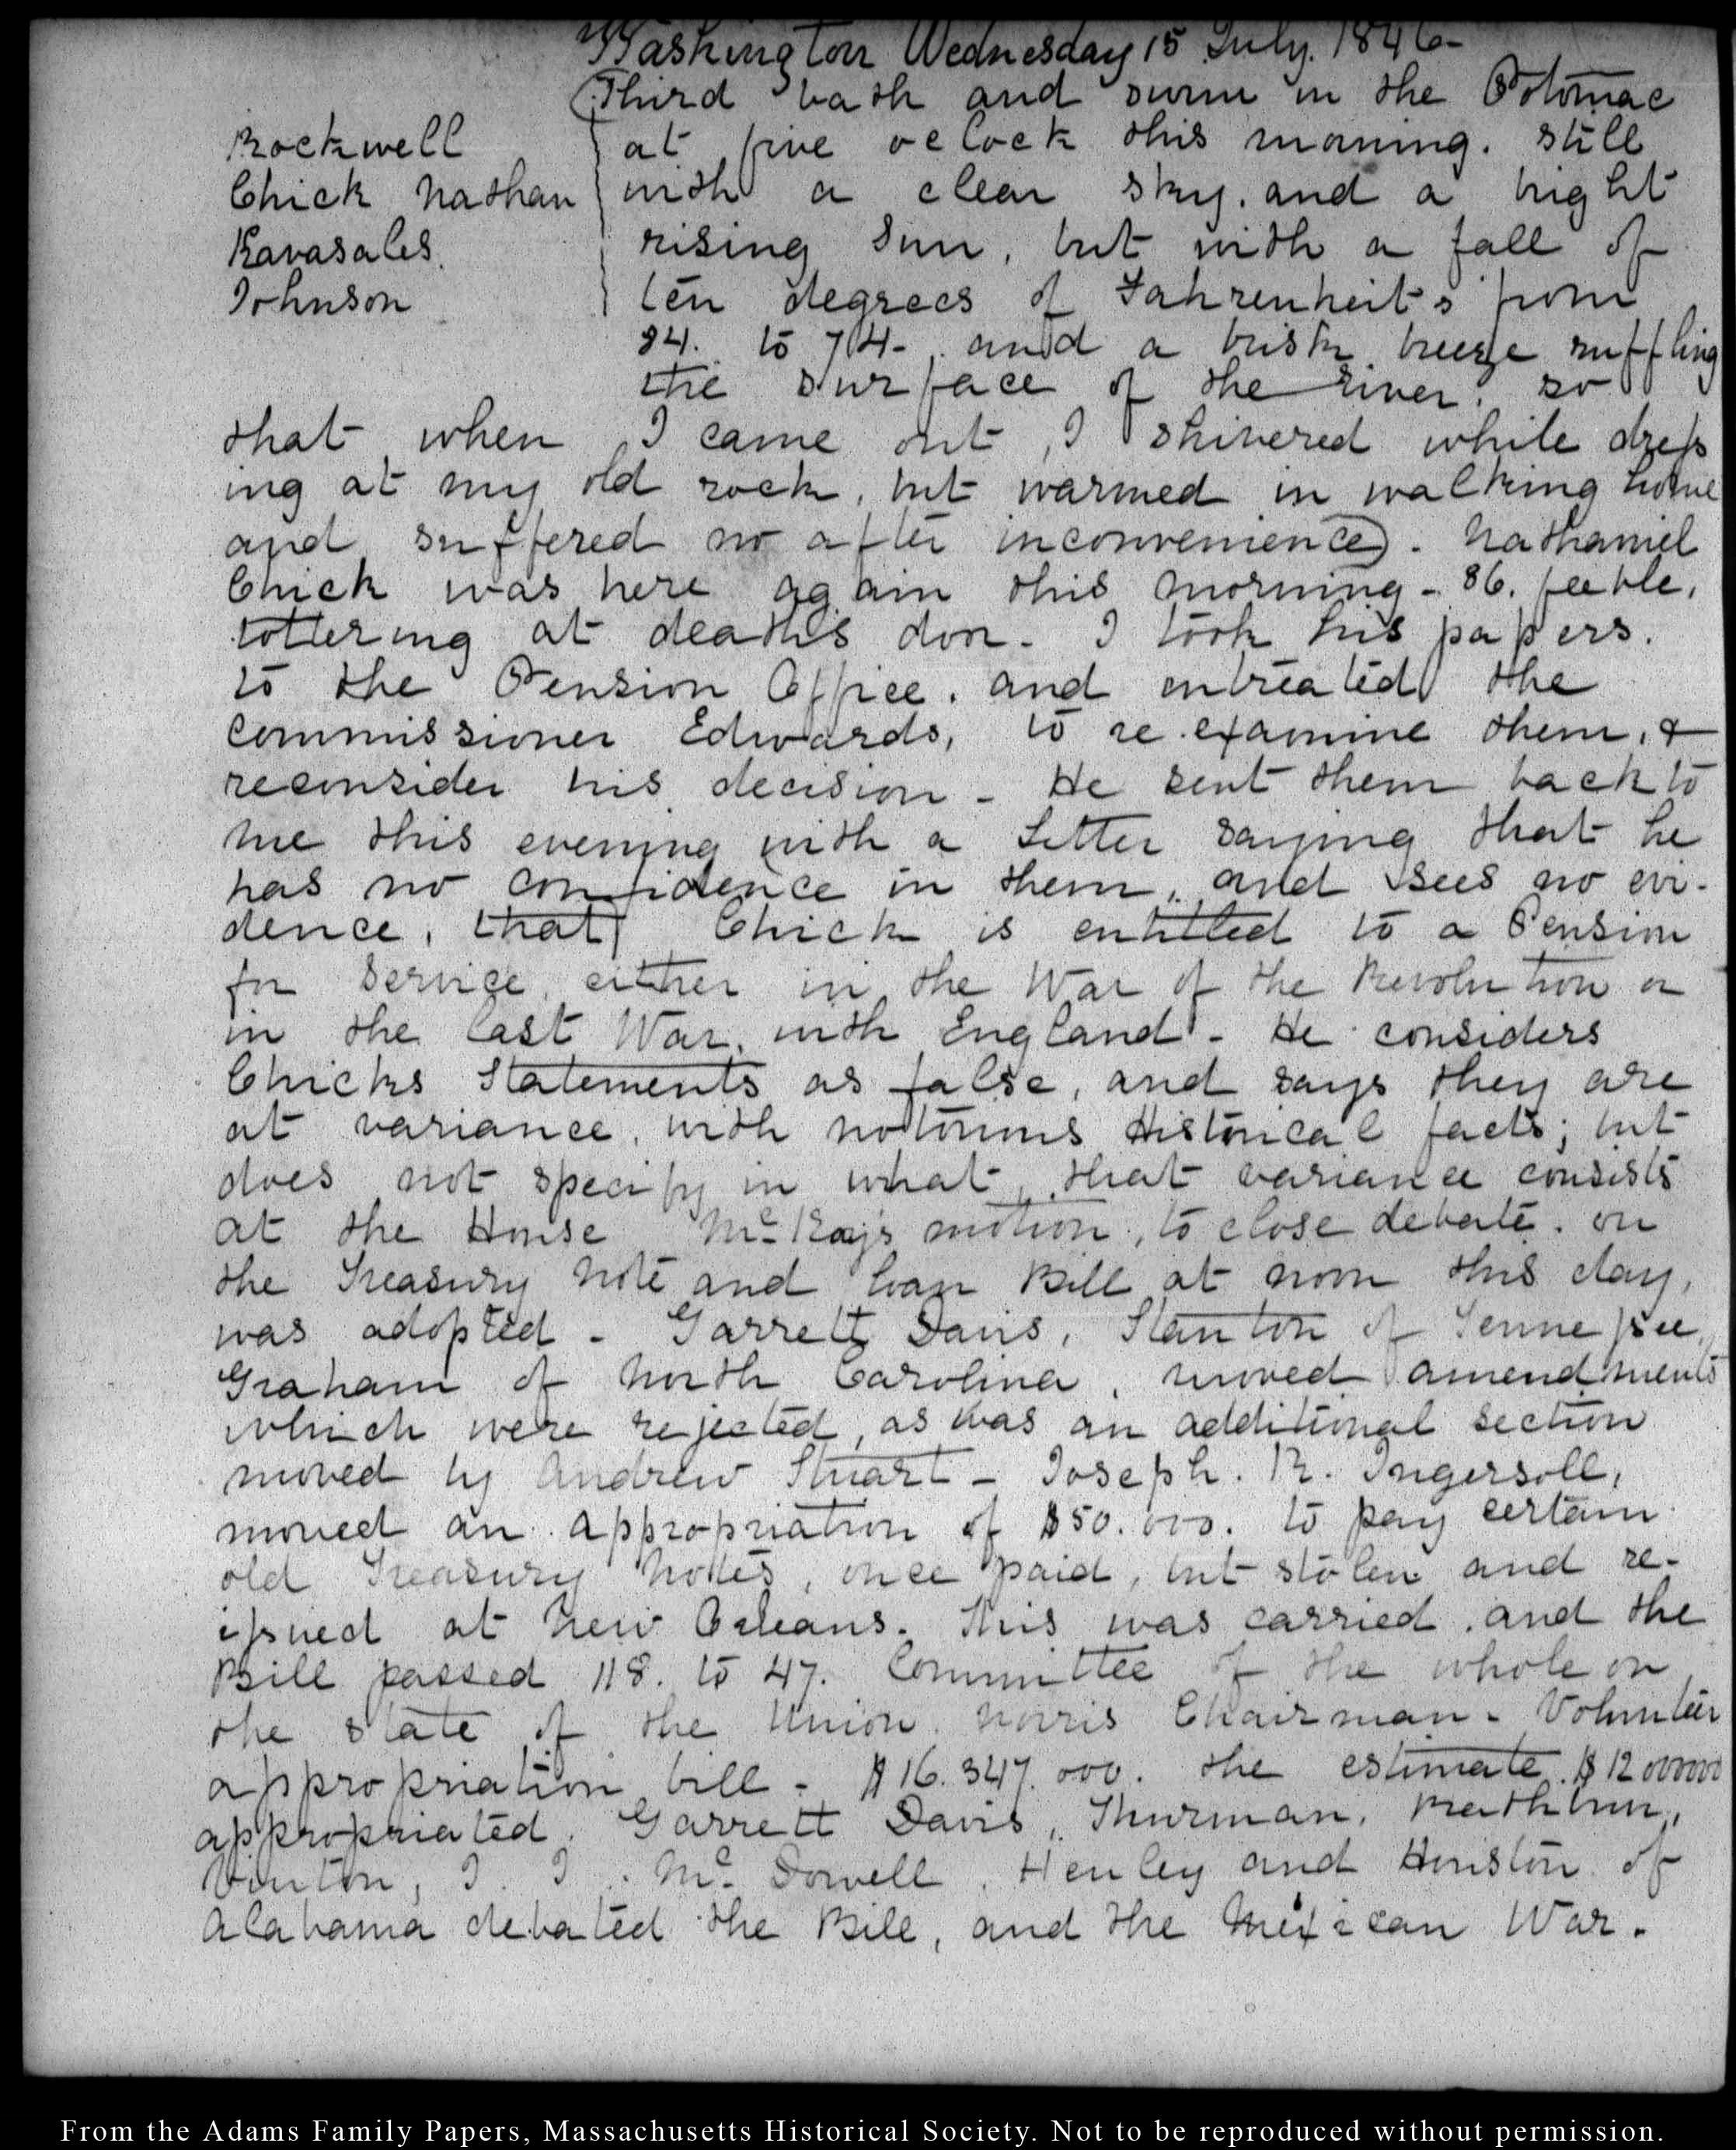 Washington Wednesday 15 July. 1846-
Rockwell
Chick Nathan
Kavasales.
Johnson
(Third bath and swim in the Potomac
at five oclock this morning. still
with a clear sky. and a bright
rising Sun, but with a fall of
ten degrees of Fahrenheit's from
84. to 74-. and a brisk breeze ruffling
the surface of the river; so
that when I came out, I shivered while dress
ing at my old rock, but warmed in walking home
and suffered no after inconvenience). Nathaniel
Chick was here again this morning - 86. feeble,
tottering at death's door. I took his papers.
to the Pension Office. and entreated the
Commissioner Edwards, to re-examine them, &
reconsider his decision - He sent them back to
me this evening with a Letter saying that he
has no confidence in them, and sees no evi-
dence, that Chick is entitled to a Pension
for Service either in the War of the Revolution or
in the last War. with England - He considers
Chicks Statements as false, and says they are
at variance, with notorious Historical facts; but
does not specify in what, that variance consists
at the House McKay's motion, to close debate. on
the Treasury Note and Loan Bill at noon this day,
was adopted - Garrett Davis, Stanton of Tennessee,
Graham of North Carolina, moved amendments
which were rejected, as was an additional section
moved by Andrew Stuart - Joseph. R. Ingersoll,
moved an appropriation of $50.000. to pay certain
old Treasury Notes, once paid, but stolen and re-
issued at New Orleans. This was carried. and the
Bill passed 118. to 47. Committee of the whole on
the state of the Union. Norris Chairman - Volunteer
appropriation bill - $16.347.000. the estimate. $12000000
appropriated. Garrett Davis, Thurman, Rathbun,
Vinton, J. J. McDowell, Henley and Houston of
Alabama debated the Bill, and the Mexican War.
From the Adams Family Papers, Massachusetts Historical Society. Not to be reproduced without permission.